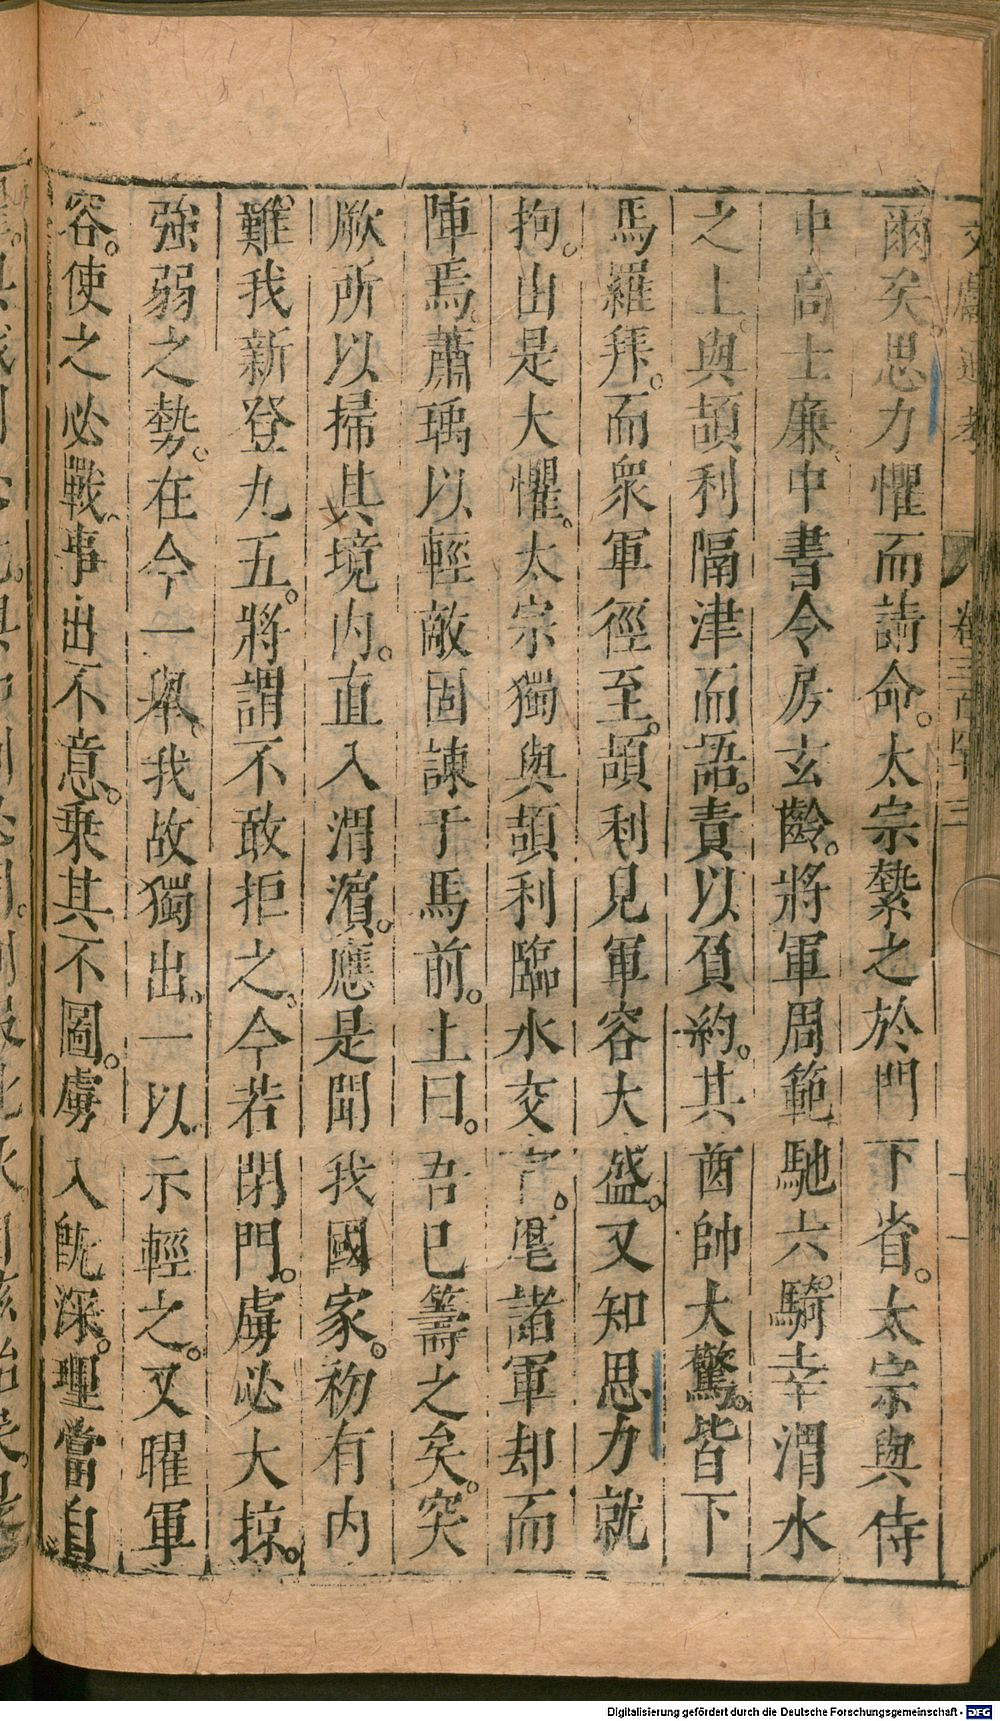 文獻通考 卷三百四十三
爾矣。思力懼而請命。太宗縶之於門下省。太宗與侍
中高士廉、中書令房玄齡。將軍周範馳六騎幸渭水
之上。與頡利隔津而語。責以負約。其酋帥大驚。皆下
馬羅拜。而衆軍徑至。頡利見軍容大盛。又知思力就
拘。由是大懼。太宗獨與頡利臨水交言。麾諸軍却而
陣焉。蕭瑀以輕敵固諫于馬前。上曰。吾已籌之矣。突
厥所以掃其境內。直入渭濱。應是聞我國家。初有内
難。我新登九五。將謂不敢拒之。今若閉門。虜必大掠。
強弱之勢。在今一舉、我故獨出。一以示輕之。又曜軍
容。使之必戰。事出不意。乗其不圖。虜入旣深。理當自
Digitalisierung gefördert durch die Deutsche Forschungsgemeinschaft - DFG